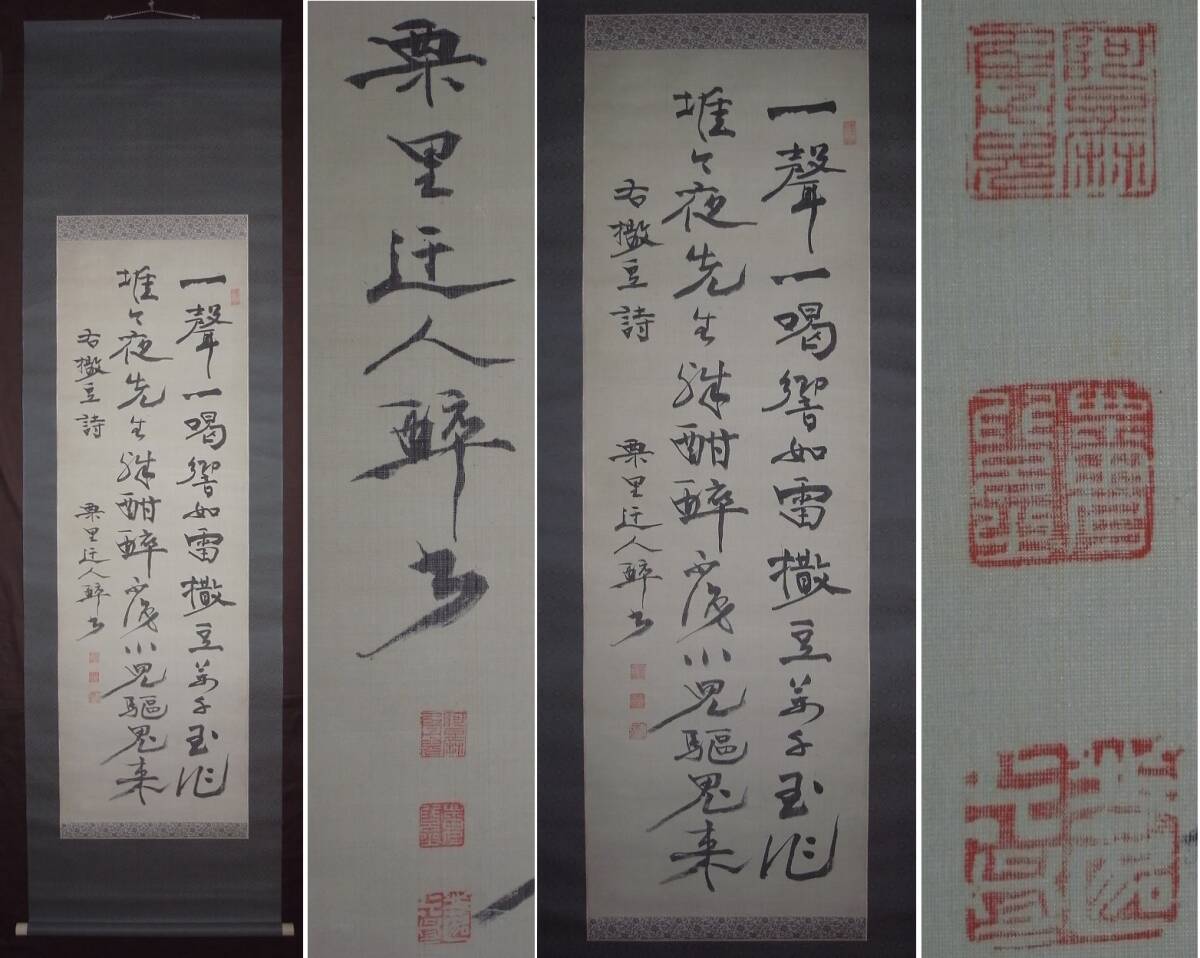 一聲一喝響如雷撒豆萬千玉作
堆今夜先生殊酣醉不小兒驅鬼来
右撒豆詩 栗里迂人醉書
栗里迂人醉書
一聲一喝響如雷撒豆萬千玉作
堆今夜先生殊酣醉不小兒驅鬼来
右撒豆詩 栗里迂人醉書